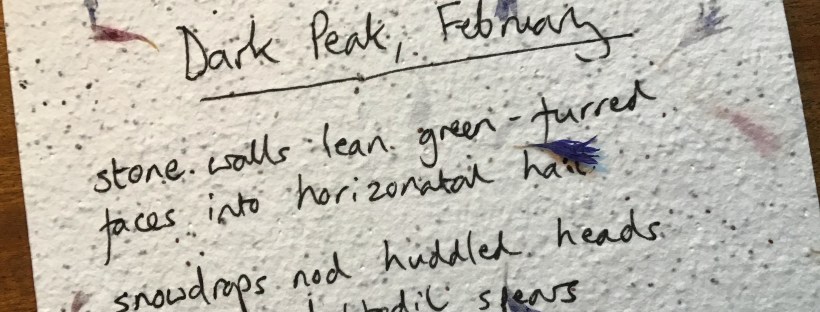 Dark Peak, February
stone walls lean green-furred
faces into horizonatal hail
snowdrops nod huddled heads
spears